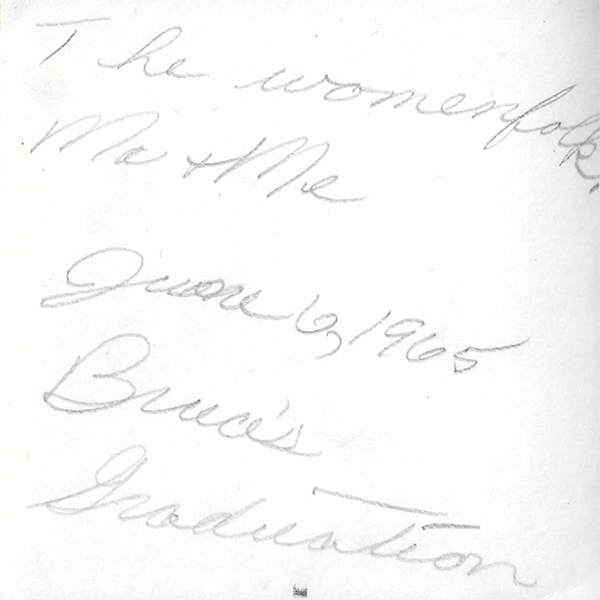 The womenfolk,
Ma + Me
June 6, 1965
Bruce's
Graduation